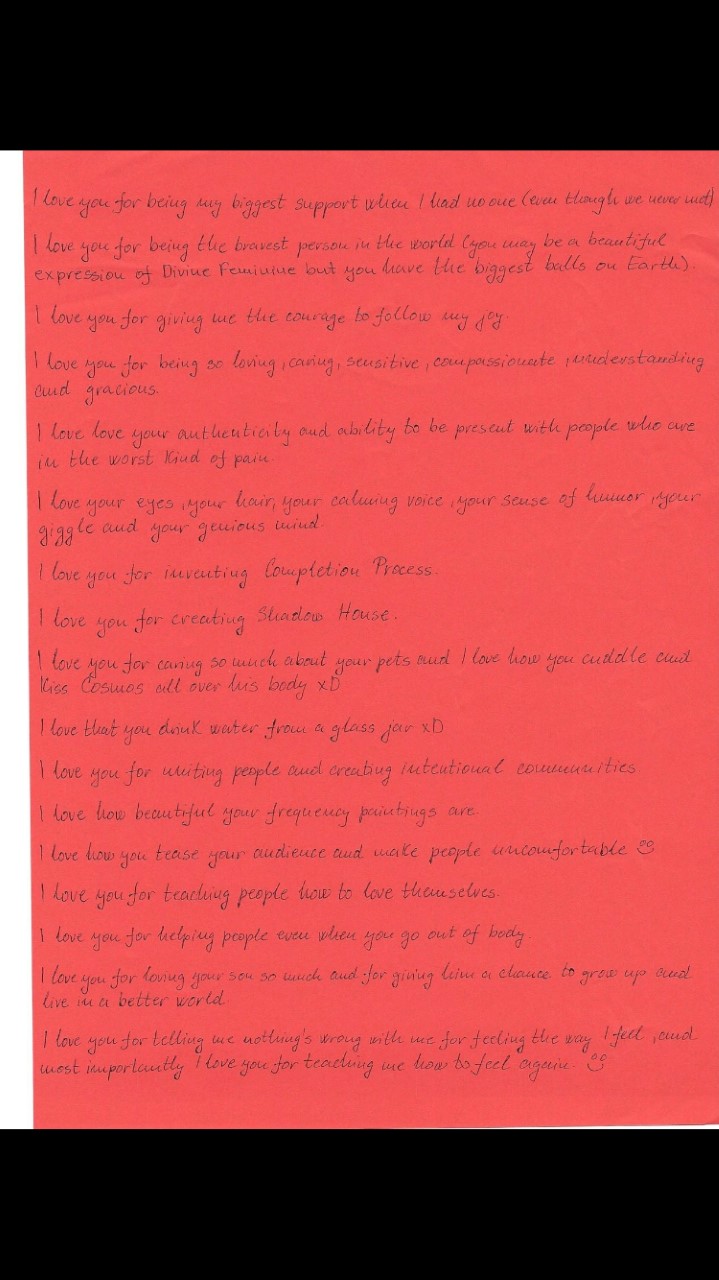 I love you for being my biggest support when I had no one (even though we never met)
I love you for being the bravest person in the world (you may be a beautiful
expression of Divine Feminine but you have the biggest balls on Earth).
I love you for giving me the courage to follow my joy.
I love you for being so loving, caring, sensitive, compassionate, understanding
and gracious.
I love love your authenticity and ability to be present with people who are
in the worst kind of pain.
I love your eyes, your hair, your calming voice, your sense of humor, your
giggle and your genious mind.
I love you for inventing Completion Process.
I love you for creating Shadow House.
I love you for caring so much about your pets and I love how you cuddle and
kiss Cosmos all over his body xD
I love that you drink water from a glass jar xD
I love you for uniting people and creating intentional communities
I love how beautiful your frequency paintings are
I love how you tease your audience and make people uncomfortable ☺
I love you for teaching people how to love themselves.
I love you for helping people even when you go out of body.
I love you for loving your son so much and for giving him a chance to grow up and
live in a better world
I love you for telling me nothing's wrong with me for feeling the way I feel, and
most importantly I love you for teaching me how to feel again. ☺